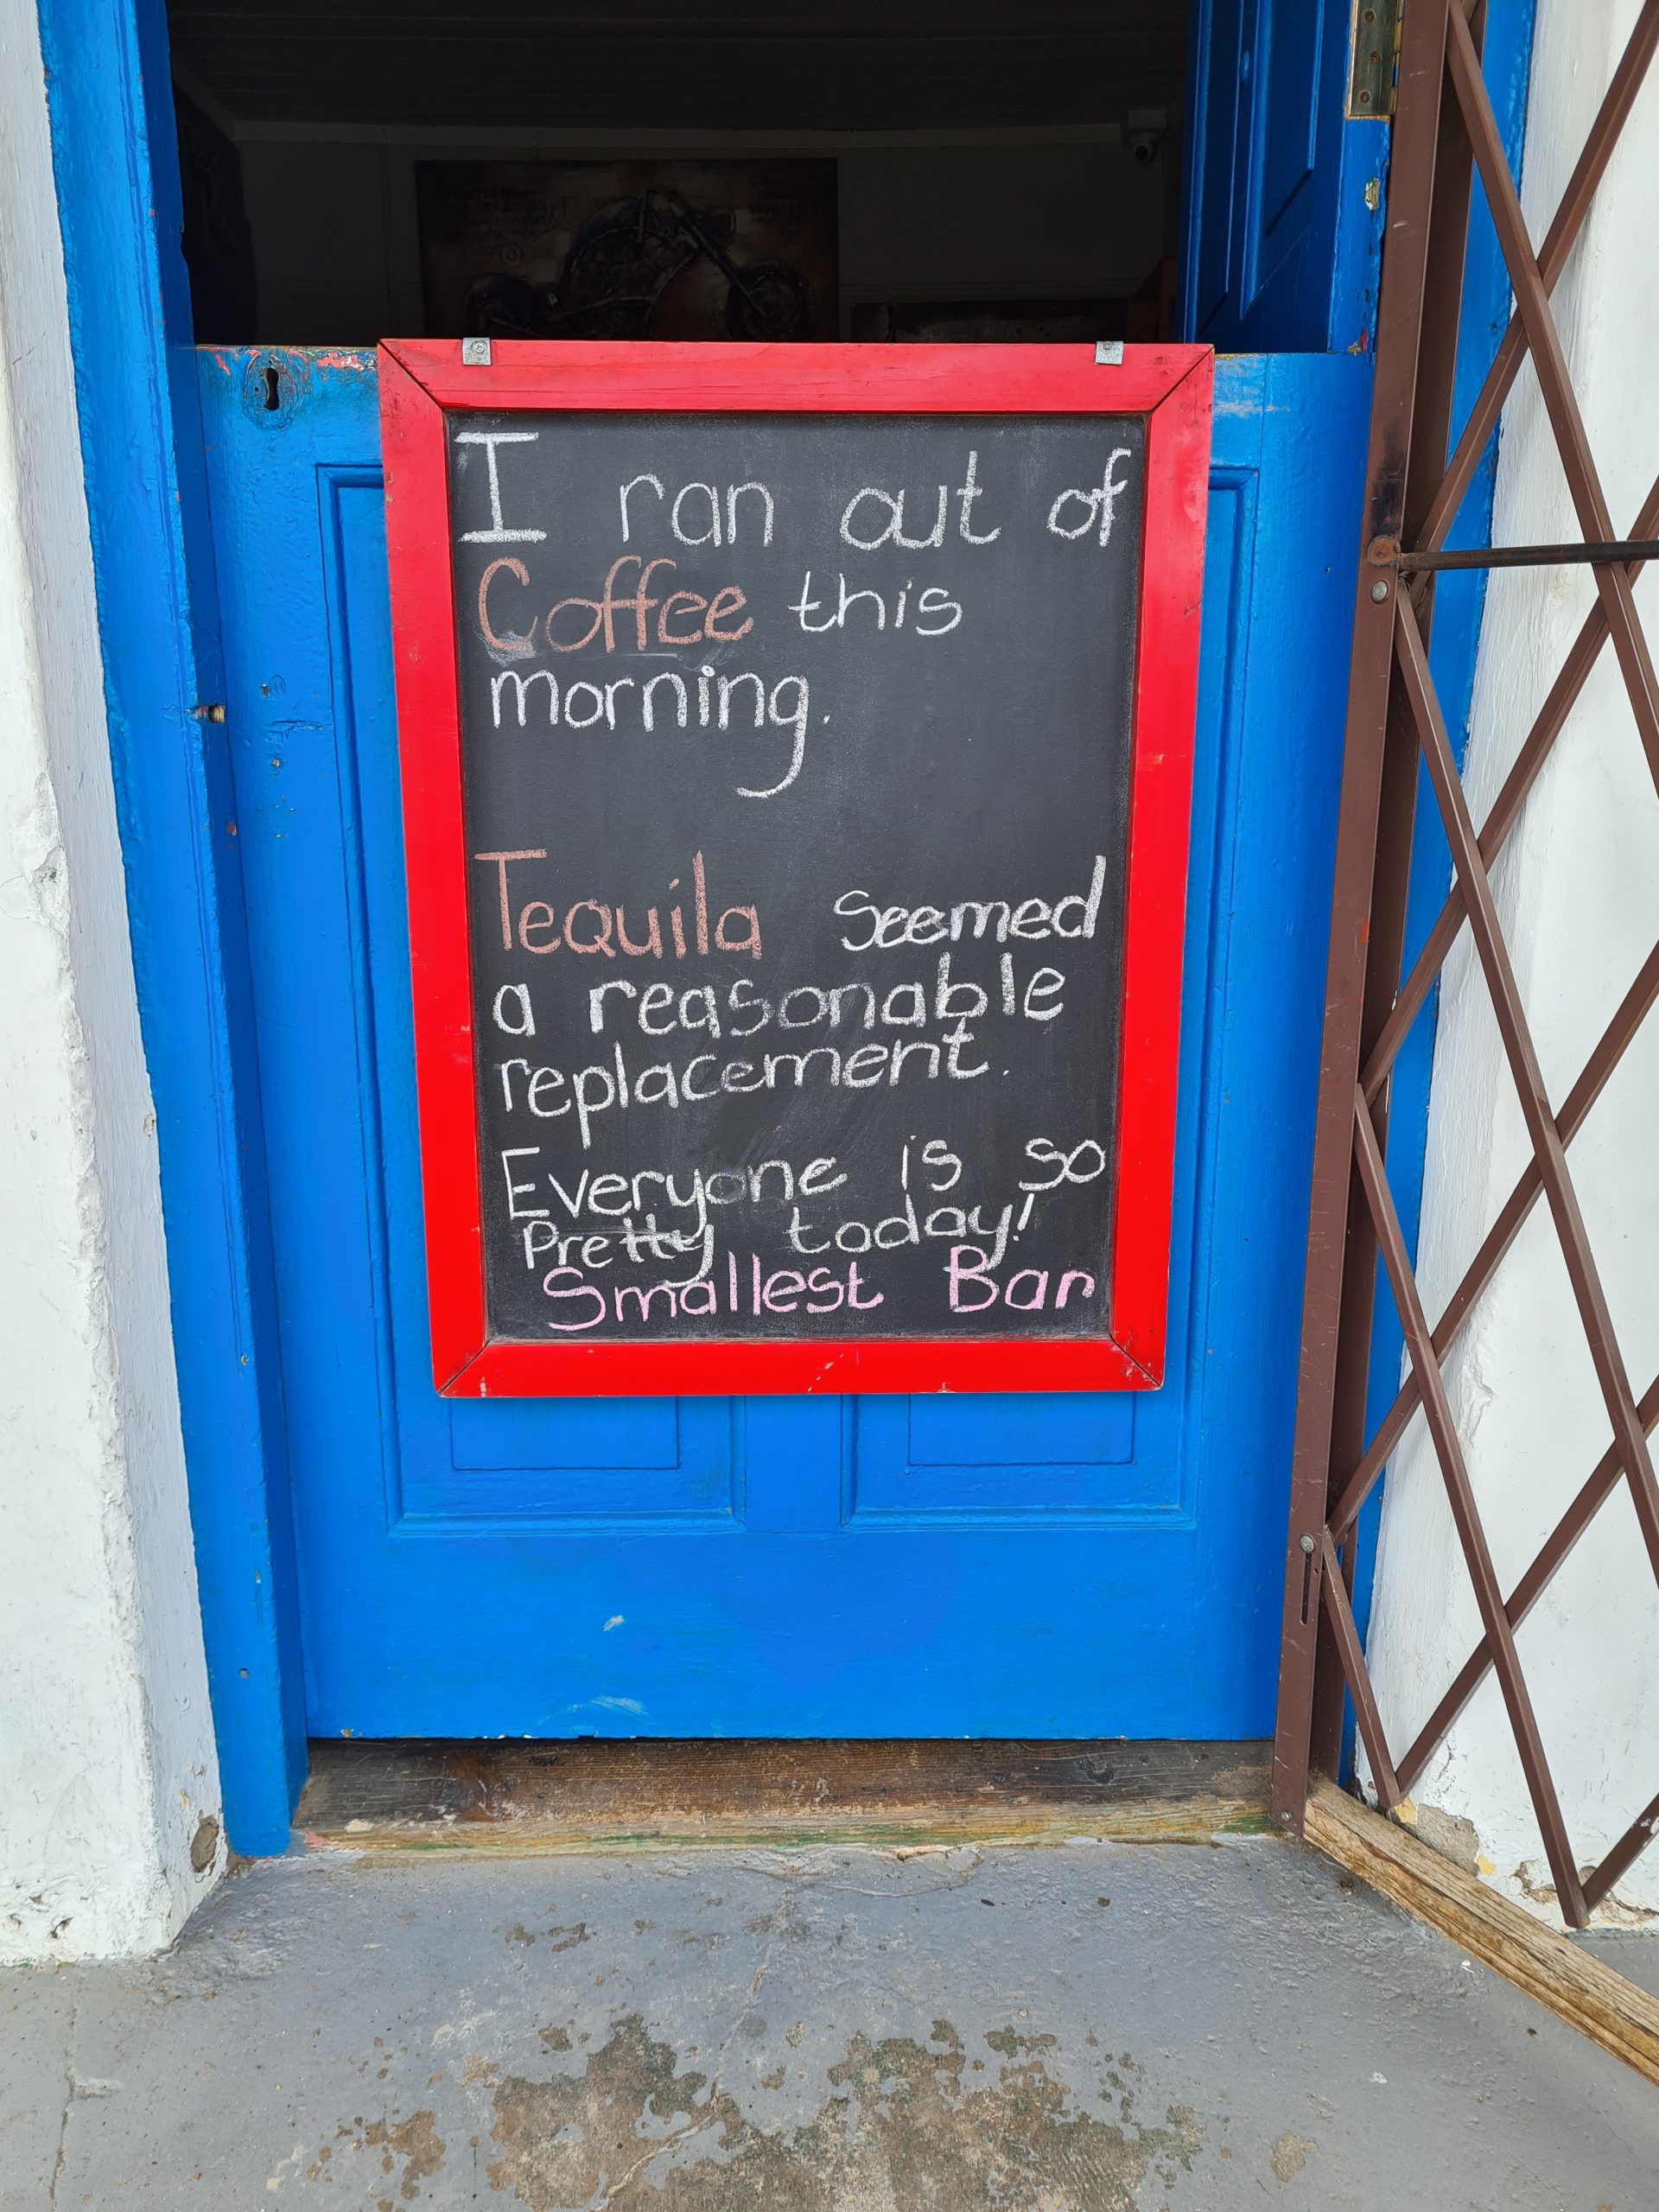 I ran out of
Coffee this
morning.
Tequila Seemed
a reasonable
replacement.
Everyone is so
Pretty today!
Smallest Bar